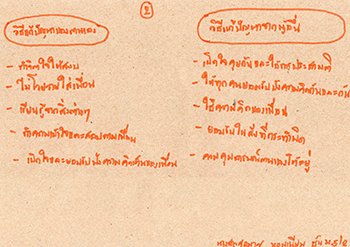 2
วิธีแก้ปัญหาของตนเอง
- ทำจิตใจให้สงบ
- ไม่โวยวายใส่เพื่อน
- เรียนรู้จากสิ่งต่างๆ
- เปิดใจและยอมรับฟังความคิดเห็นของเพื่อน
วิธีแก้ปัญหาจากผู้อื่น
- เปิดใจคุยกันและใช้
- ให้ทุกคนยอมรับฟังความคิดเห็นกันและกัน
- ใช้ความคิดของเพื่อน
- ยอมรับในสิ่งที่กระทำผิด
- ควบคุมอารมณ์ตนเองให้อยู่